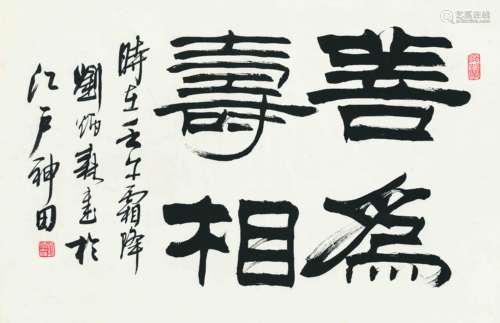 善為
壽相
時在壬午霜降
劉炳森書於
江戶神田